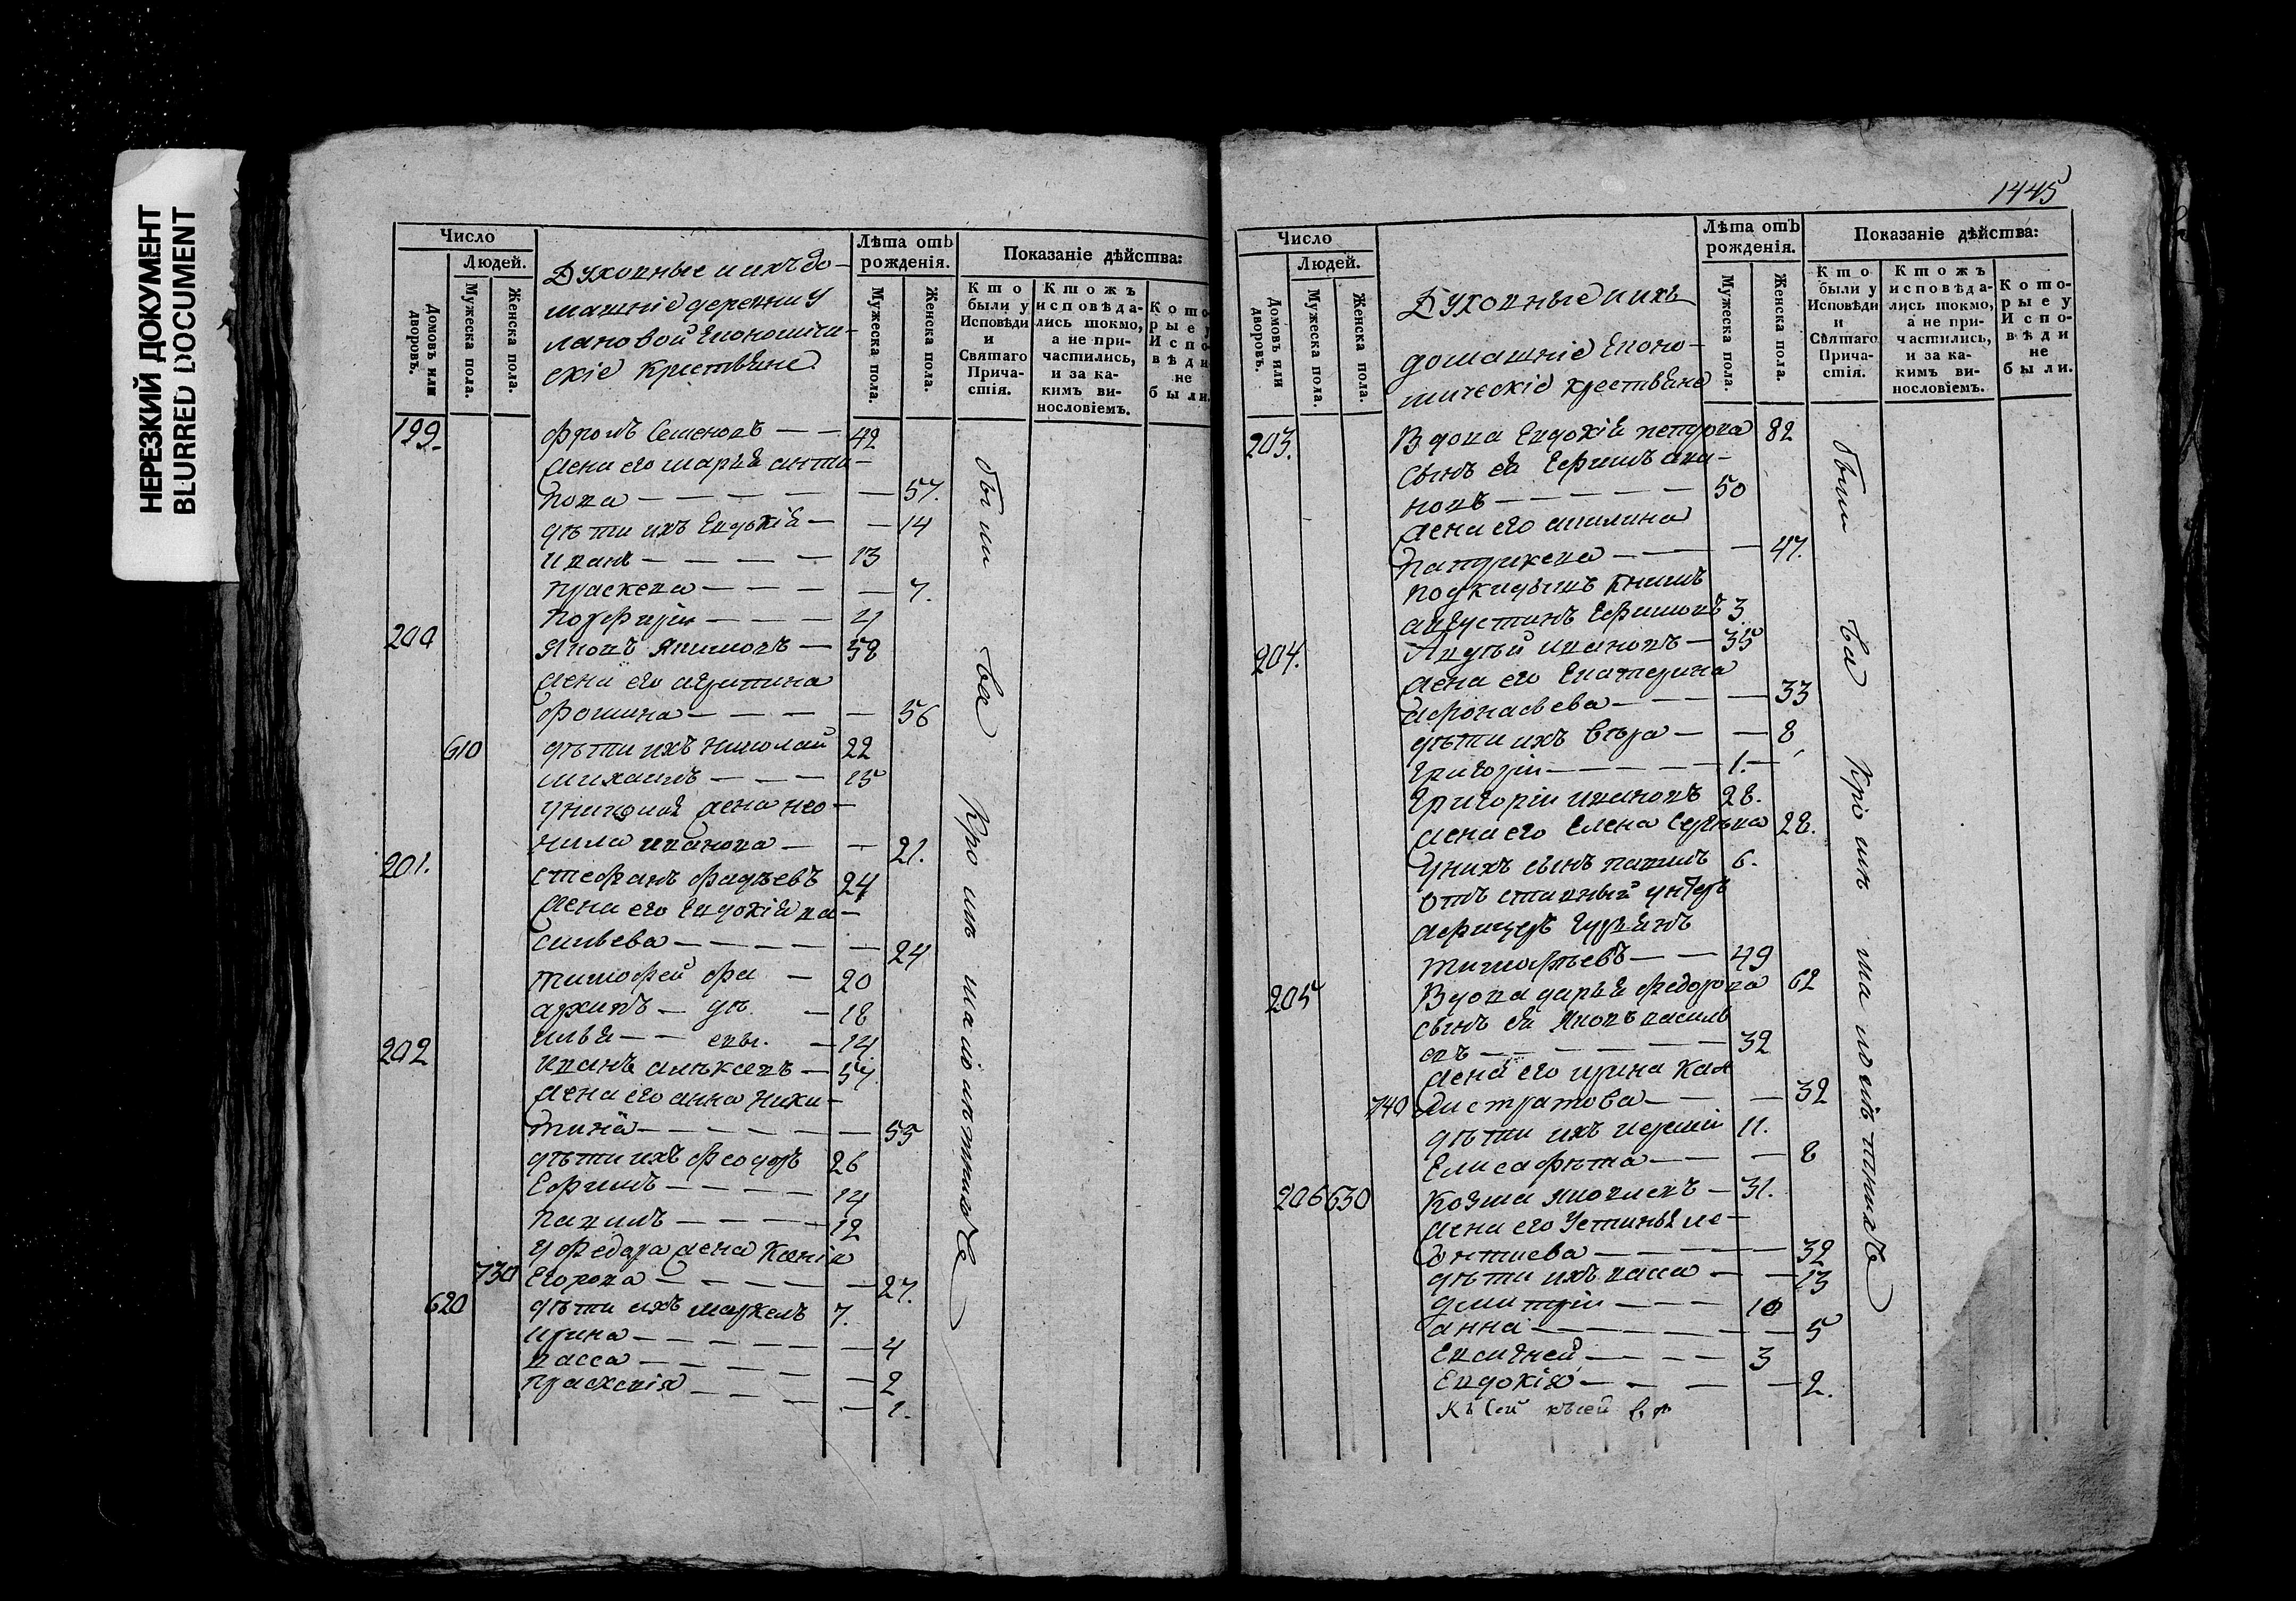 НЕРЕЗКИЙ ДОКУМЕНТ
BLURRED DOCUMENT
Число
Людей.
Домовъ или дворовъ.
Мужеска пола.
Женска пола.
Духовные и ихъ до-
машніе деревни У
лановой Економиче-
скіе крестьяне
Лѣта отъ рожденія.
Мужеска пола.
Женска пола.
Показаніе дѣйства:
Кто были у Исповѣди и Святаго Прича-стія.
Ктожъ исповѣда-лись токмо, а не при-частились, и за ка-кимъ ви-нословіемъ.
Кото-рые у Испо-вѣди не были.
199. Фролъ Семеновъ 42
жена его марья анти-
пова 57.
дѣти ихъ Евдокія 14
иванъ 13
праскева 7.
порфирій
200 Яковъ Якимовъ 58
жена его агрипина
фомина 56
610 дѣти ихъ николай 22
михаилъ 15
у николая жена нео-
нила иванова 21.
201. стефанъ фадѣевъ 24
жена его Евдокія ва-
сильева 24
тимофей фа 20
архипъ дѣ 18
илья евы. 14.
202 иванъ алѣксевъ 57
жена его анна Ники-
тина 55
дѣти ихъ феодоръ 26
Ефимъ 14
павилъ 12
у федора жена Ксенія
730 Егорова 27.
620 дѣти ихъ маркелъ 7.
ирина 4
васса 2
праскевія 1.
были
ва
Кро мѣ мало лѣтныхъ
1445
Число
Людей.
Домовъ или дворовъ.
Мужеска пола.
Женска пола.
Духовные и ихъ
домашніе Еконо-
мическіе крестьяне
Лѣта отъ рожденія.
Мужеска пола.
Женска пола.
Показаніе дѣйства:
Кто были у Исповѣди и Святаго Прича-стія.
Ктожъ исповѣда-лись токмо, а не при-частились, и за ка-кимъ ви-нословіемъ.
Кото-рые у Испо-вѣди не были.
203. Вдова Евдокія петрова 82
сынъ ея Ефимъ ива-
новъ 50
жена его акилина
патрикева 47.
подкидышъ
августинъ Ефимовъ 3.
204. Авдѣй ивановъ 35
жена его Екатерина
афонасьева 33
дѣти ихъ вѣра 8
григорій 1.
Григорій ивановъ 28.
жена его Елена Сергѣва 28.
У нихъ сынъ павилъ 6.
отъ ставный унтеръ
афицеръ
тимофѣевъ 49
205 Вдова дарья федорова 62
сынъ ея Яковъ василь
евъ 32
жена его ирина Кал
740 листратова 32
дѣти ихъ 11.
Елисафѣта 8
206 630 Козма яковлевъ 31.
жена его Устинья ле-
онтиева 32
дѣти ихъ васса 13
дмитрій 10
анна 5
Евсигней 3
Евдокія 2.
Къ Сей
были
ва
Кро мѣ ма ло лѣтнихъ